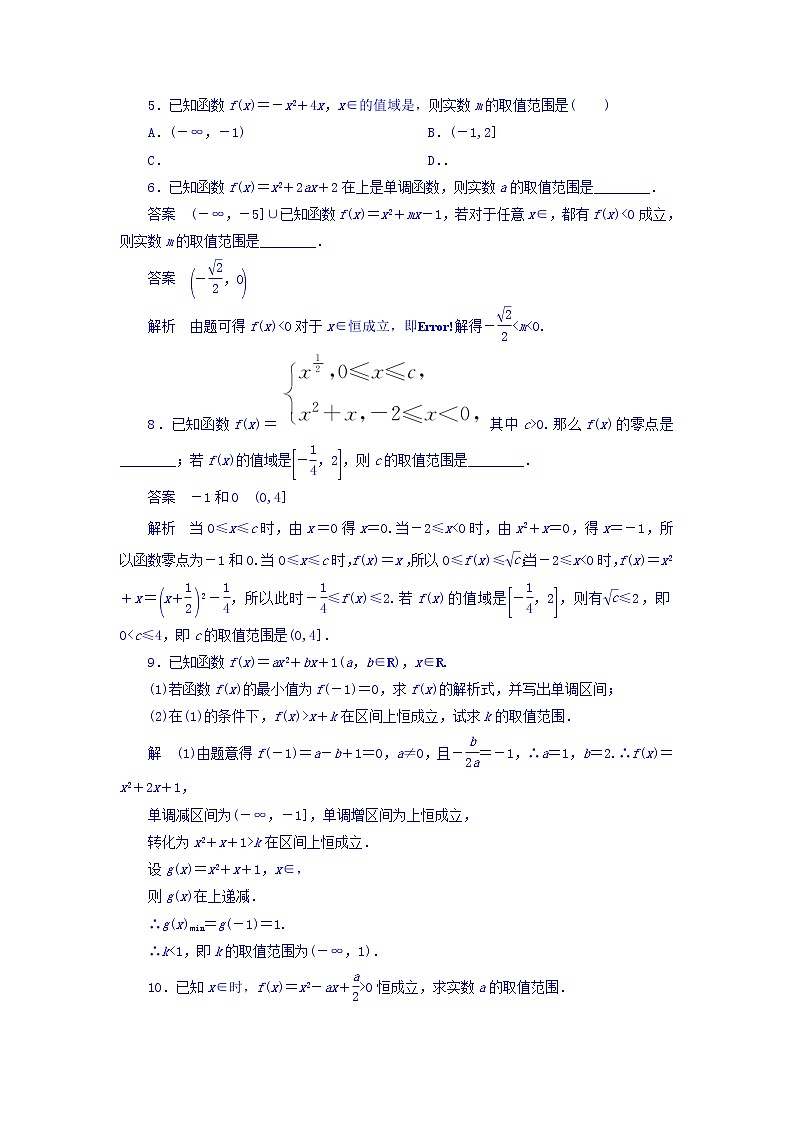 5．已知函数 f(x)＝－x²＋4x，x∈的值域是，则实数 m 的取值范围是(　　)
A．(－∞，－1)　　B．(－1,2]
C．　　D．.
6．已知函数 f(x)＝x²＋2ax＋2 在上是单调函数，则实数 a 的取值范围是________．
答案　(－∞，－5]∪已知函数 f(x)＝x²＋mx－1，若对于任意 x∈，都有 f(x)<0 成立，
则实数 m 的取值范围是________．
答案　(－√2/2，0)
解析　由题可得 f(x)<0 对于 x∈恒成立，即Error!解得－√2/2<m<0.
8．已知函数 f(x)＝{x^(1/2)，0≤x≤c，
x²＋x，－2≤x<0， 其中 c>0.那么 f(x)的零点是
________；若 f(x)的值域是[－1/4，2]，则 c 的取值范围是________．
答案　－1 和 0　(0,4]
解析　当 0≤x≤c 时，由 x＝0 得 x＝0.当－2≤x<0 时，由 x²＋x＝0，得 x＝－1，所
以函数零点为－1 和 0.当 0≤x≤c 时，f(x)＝x，所以 0≤f(x)≤√c；当－2≤x<0 时，f(x)＝x²
＋x＝(x＋1/2)²－1/4，所以此时－1/4≤f(x)≤2.若 f(x)的值域是[－1/4，2]，则有√c≤2，即
0<c≤4，即 c 的取值范围是(0,4]．
9．已知函数 f(x)＝ax²＋bx＋1(a，b∈R)，x∈R.
(1)若函数 f(x)的最小值为 f(－1)＝0，求 f(x)的解析式，并写出单调区间；
(2)在(1)的条件下，f(x)>x＋k 在区间上恒成立，试求 k 的取值范围．
解　(1)由题意得 f(－1)＝a－b＋1＝0，a≠0，且－b/2a＝－1，∴a＝1，b＝2.∴f(x)＝
x²＋2x＋1，
单调减区间为(－∞，－1]，单调增区间为上恒成立，
转化为 x²＋x＋1>k 在区间上恒成立．
设 g(x)＝x²＋x＋1，x∈，
则 g(x)在上递减．
∴g(x)min＝g(－1)＝1.
∴k<1，即 k 的取值范围为(－∞，1)．
10．已知 x∈时，f(x)＝x²－ax＋a/2>0 恒成立，求实数 a 的取值范围．